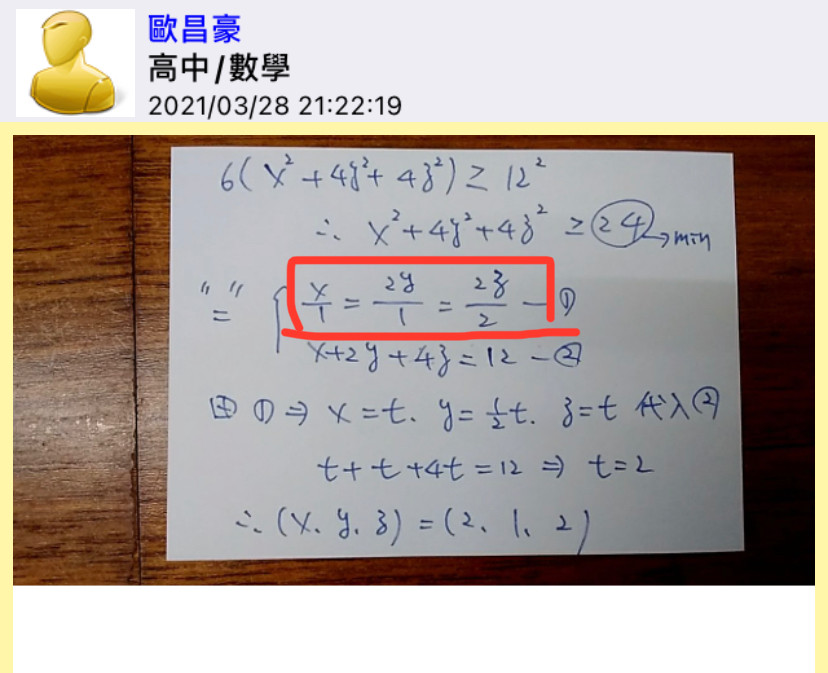 歐昌豪
高中/數學
2021/03/28 21:22:19
6(x²+4y²+4z²) ≥ 12²
∴ x²+4y²+4z² ≥ 24 → min
"=" { x/1 = 2y/1 = 2z/2 — ①
x+2y+4z=12 — ②
由 ① ⇒ x=t. y=½t. z=t 代入②
t+t+4t=12 ⇒ t=2
∴ (x. y. z) = (2. 1. 2)